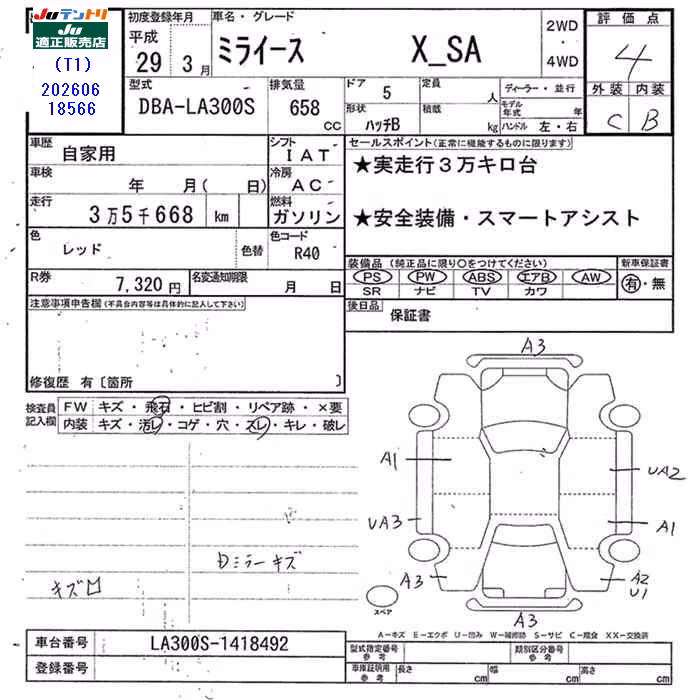 JUテントリ
JU適正販売店
(T1)
202606
18566
初度登録年月
平成
29 3月
車名・グレード
ミライース X_SA
2WD
4WD
評価点
4
外装 内装
C B
型式
DBA-LA300S
排気量
658 CC
ドア 5
定員 人
形状 ハッチB
積載 kg
ディーラー・並行
モデル年式 年
ハンドル 左・右
車歴
自家用
シフト
IAT
車検
年 月( 日)
冷房
AC
走行
3万5千668 km
燃料
ガソリン
色
レッド
色替
色コード
R40
R券
7,320円
名変通知期限
月 日
セールスポイント(正常に機能するものに限ります)
★実走行3万キロ台
★安全装備・スマートアシスト
装備品(純正品に限り○をつけてください)
新車保証書
PS PW ABS エアB AW
有・無
SR ナビ TV カワ
後日品
保証書
注意事項申告欄(不具合内容等は具体的に記入して下さい)
修復歴 有〔箇所 〕
検査員記入欄
FW キズ・飛石・ヒビ割・リペア跡・×要
内装 キズ・汚レ・コゲ・穴・スレ・キレ・破レ
A3
A1
UA2
UA3
A1
A3
A2
U1
A3
スペア
Dミラーキズ
A-キズ E-エクボ U-凹み W-補修跡 S-サビ C-腐食 XX-交換済
車台番号
LA300S-1418492
登録番号
型式指定番号
参考
類別区分番号
参考
車庫証明用
参考
長さ cm
幅 cm
高さ cm